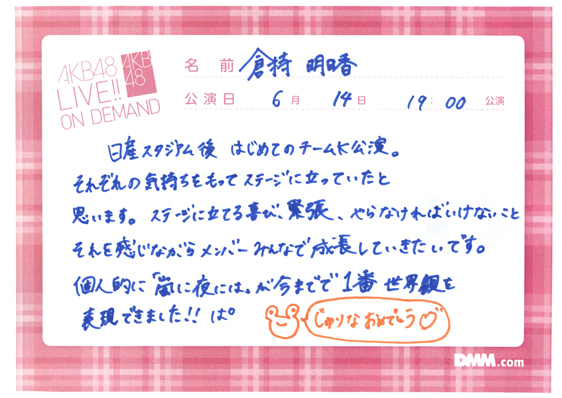 AKB48
LIVE!!
ON DEMAND
AKB
48
名 前 倉持 明日香
公演日 6月 14日 19:00 公演
日産スタジアム後 はじめてのチームK公演。
それぞれの気持ちをもってステージに立っていたと
思います。ステージに立てる喜び、緊張、やらなければいけないこと
それを感じながらメンバーみんなで成長していきたいです。
個人的に「嵐に夜には」が今までで1番世界観を
表現できました!! ぱ。
じゅりなおめでとう♡
DMM.com